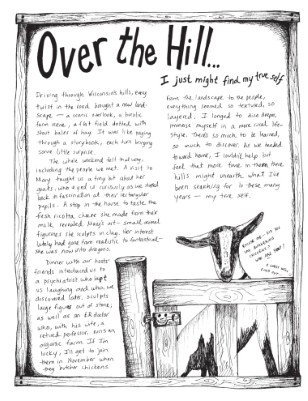 Over the Hill...
I just might find my true self
Driving through Wisconsin's hills, every
twist in the road brought a new land-
scape — a scenic overlook, a bucolic
farm scene, a flat field dotted with
giant bales of hay. It was like paging
through a storybook, each turn bringing
some little surprise.
The whole weekend felt that way,
including the people we met. A visit to
Mary taught us a thing or two about her
goats, who eyed us curiously as we stared
back in fascination at their rectangular
pupils. A stop in the house to taste the
fresh ricotta, chevre she made from their
milk, revealed Mary's art - small, animal
figurines she sculpts in clay, her interest
lately had gone from realistic to fantastical—
she was now into dragons.
Dinner with our host
friends introduced us to
a psychiatrist who kept
us laughing and who, we
discovered later, sculpts
large figures out of stone,
as well as an ER doctor
who, with his wife, a
retired professor, runs an
organic farm. If I'm
lucky, I'll get to join
them in November when
they butcher chickens.
From the landscape to the people,
everything seemed so textured, so
layered. I longed to dive deeper,
immerse myself in a more rural life-
style. There's so much to be learned,
so much to discover. As we headed
toward home, I couldn't help but
feel that more time in them there
hills might unearth what I've
been searching for in these many
years — my true self.